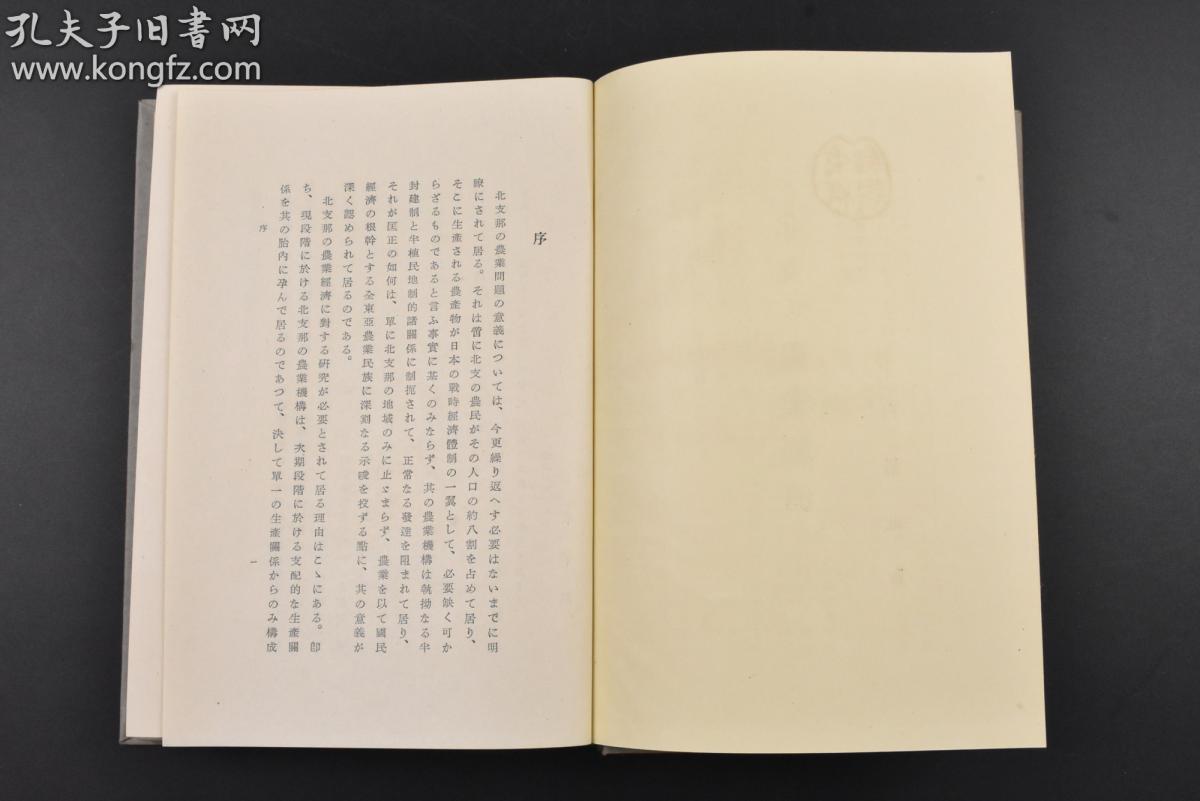 孔夫子旧书网
www.kongfz.com
序
北支那の農業問題の意義については、今更繰り返へす必要はないまでに明
瞭にされて居る。それは啻に北支の農民がその人口の約八割を占めて居り、
そこに生産される農産物が日本の戰時經濟體制の一翼として、必要缺く可か
らざるものであると言ふ事實に基くのみならず、其の農業機構は執拗なる半
封建制と半植民地制的諸關係に制扼されて、正常なる發達を阻まれて居り、
それが匡正の如何は、單に北支那の地域のみに止まらず、農業を以て國民
經濟の根幹とする全東亞農業民族に深刻なる示唆を投ずる點に、其の意義が
深く認められて居るのである。
北支那の農業經濟に對する研究が必要とされて居る理由はこゝにある。卽
ち、現段階に於ける北支那の農業機構は、次期段階に於ける支配的な生産關
係を其の胎內に孕んで居るのであつて、決して單一の生産關係からのみ構成
序
一